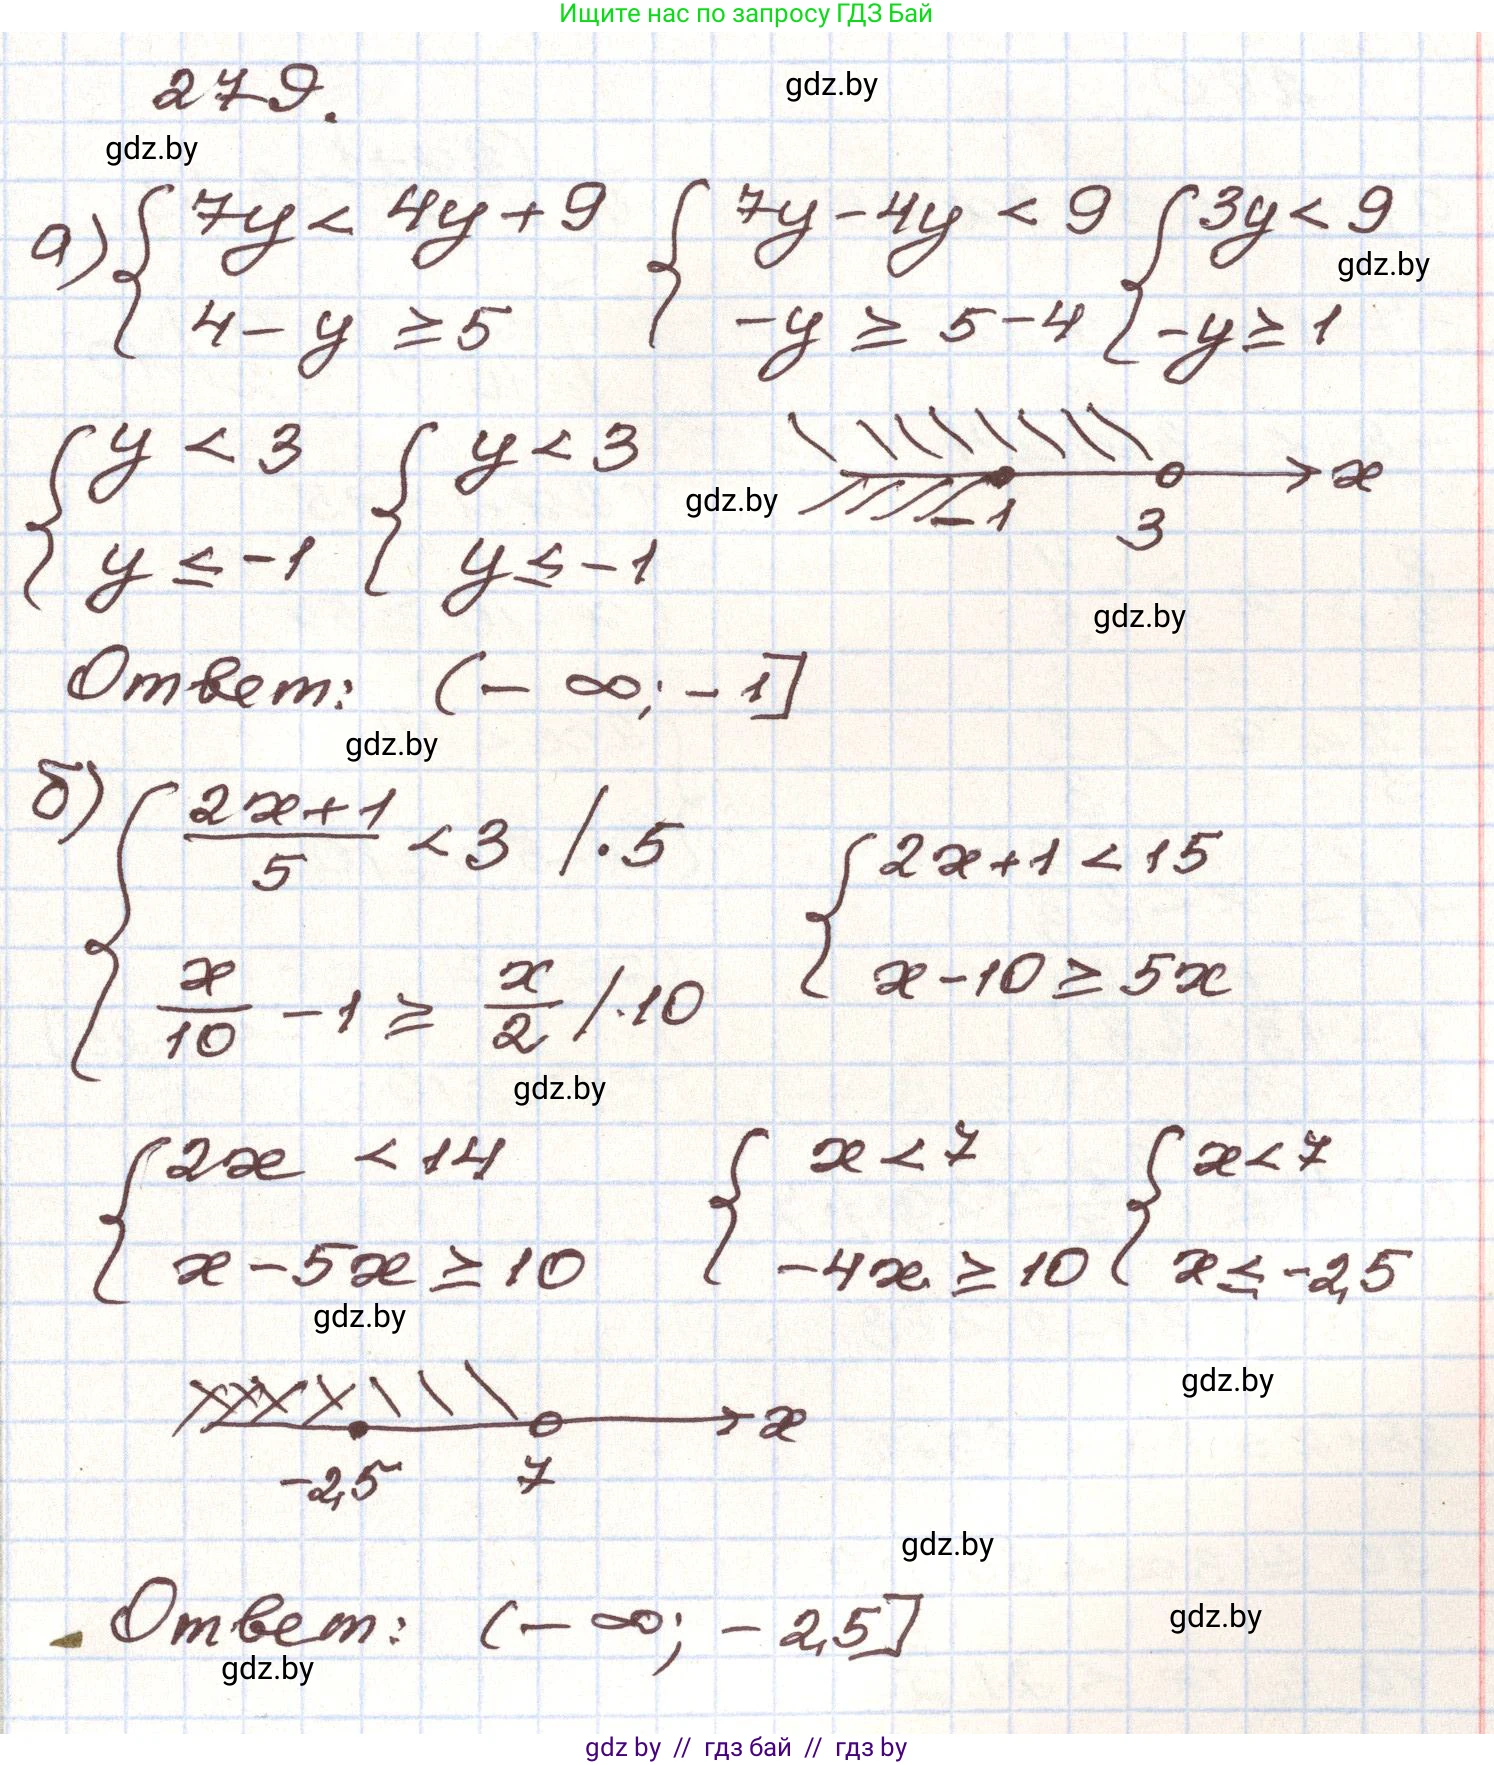 Ищите нас по запросу ГДЗ Бай
279.
gdz.by
gdz.by
а) { 7y < 4y + 9 { 7y - 4y < 9 { 3y < 9
gdz.by
4 - y ≥ 5 -y ≥ 5 - 4 -y ≥ 1
{ y < 3 { y < 3
x
gdz.by
-1 3
y ≤ -1 y ≤ -1
gdz.by
Ответ: (-∞; -1]
gdz.by
б) { (2x+1)/5 < 3 / · 5 { 2x+1 < 15
x/10 - 1 ≥ x/2 / · 10 x - 10 ≥ 5x
gdz.by
{ 2x < 14 { x < 7 { x < 7
x - 5x ≥ 10 -4x ≥ 10 x ≤ -2,5
gdz.by
gdz.by
x
-2,5 7
gdz.by
Ответ: (-∞; -2,5]
gdz.by
gdz.by
gdz by // гдз бай // гдз by